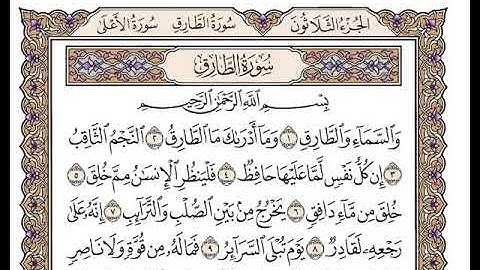 الجزء الثلاثون سورة الطارق سورة الأعلى
سُورَةُ الطَّارِقِ
بِسْمِ اللَّهِ الرَّحْمَٰنِ الرَّحِيمِ
وَالسَّمَاءِ وَالطَّارِقِ ١ وَمَا أَدْرَىٰكَ مَا الطَّارِقُ ٢ النَّجْمُ الثَّاقِبُ
٣ إِن كُلُّ نَفْسٍ لَّمَّا عَلَيْهَا حَافِظٌ ٤ فَلْيَنظُرِ الْإِنسَٰنُ مِمَّ خُلِقَ ٥
خُلِقَ مِن مَّاءٍ دَافِقٍ ٦ يَخْرُجُ مِنۢ بَيْنِ الصُّلْبِ وَالتَّرَائِبِ ٧ إِنَّهُ عَلَىٰ
رَجْعِهِ لَقَادِرٌ ٨ يَوْمَ تُبْلَى السَّرَائِرُ ٩ فَمَا لَهُ مِن قُوَّةٍ وَلَا نَاصِرٍ